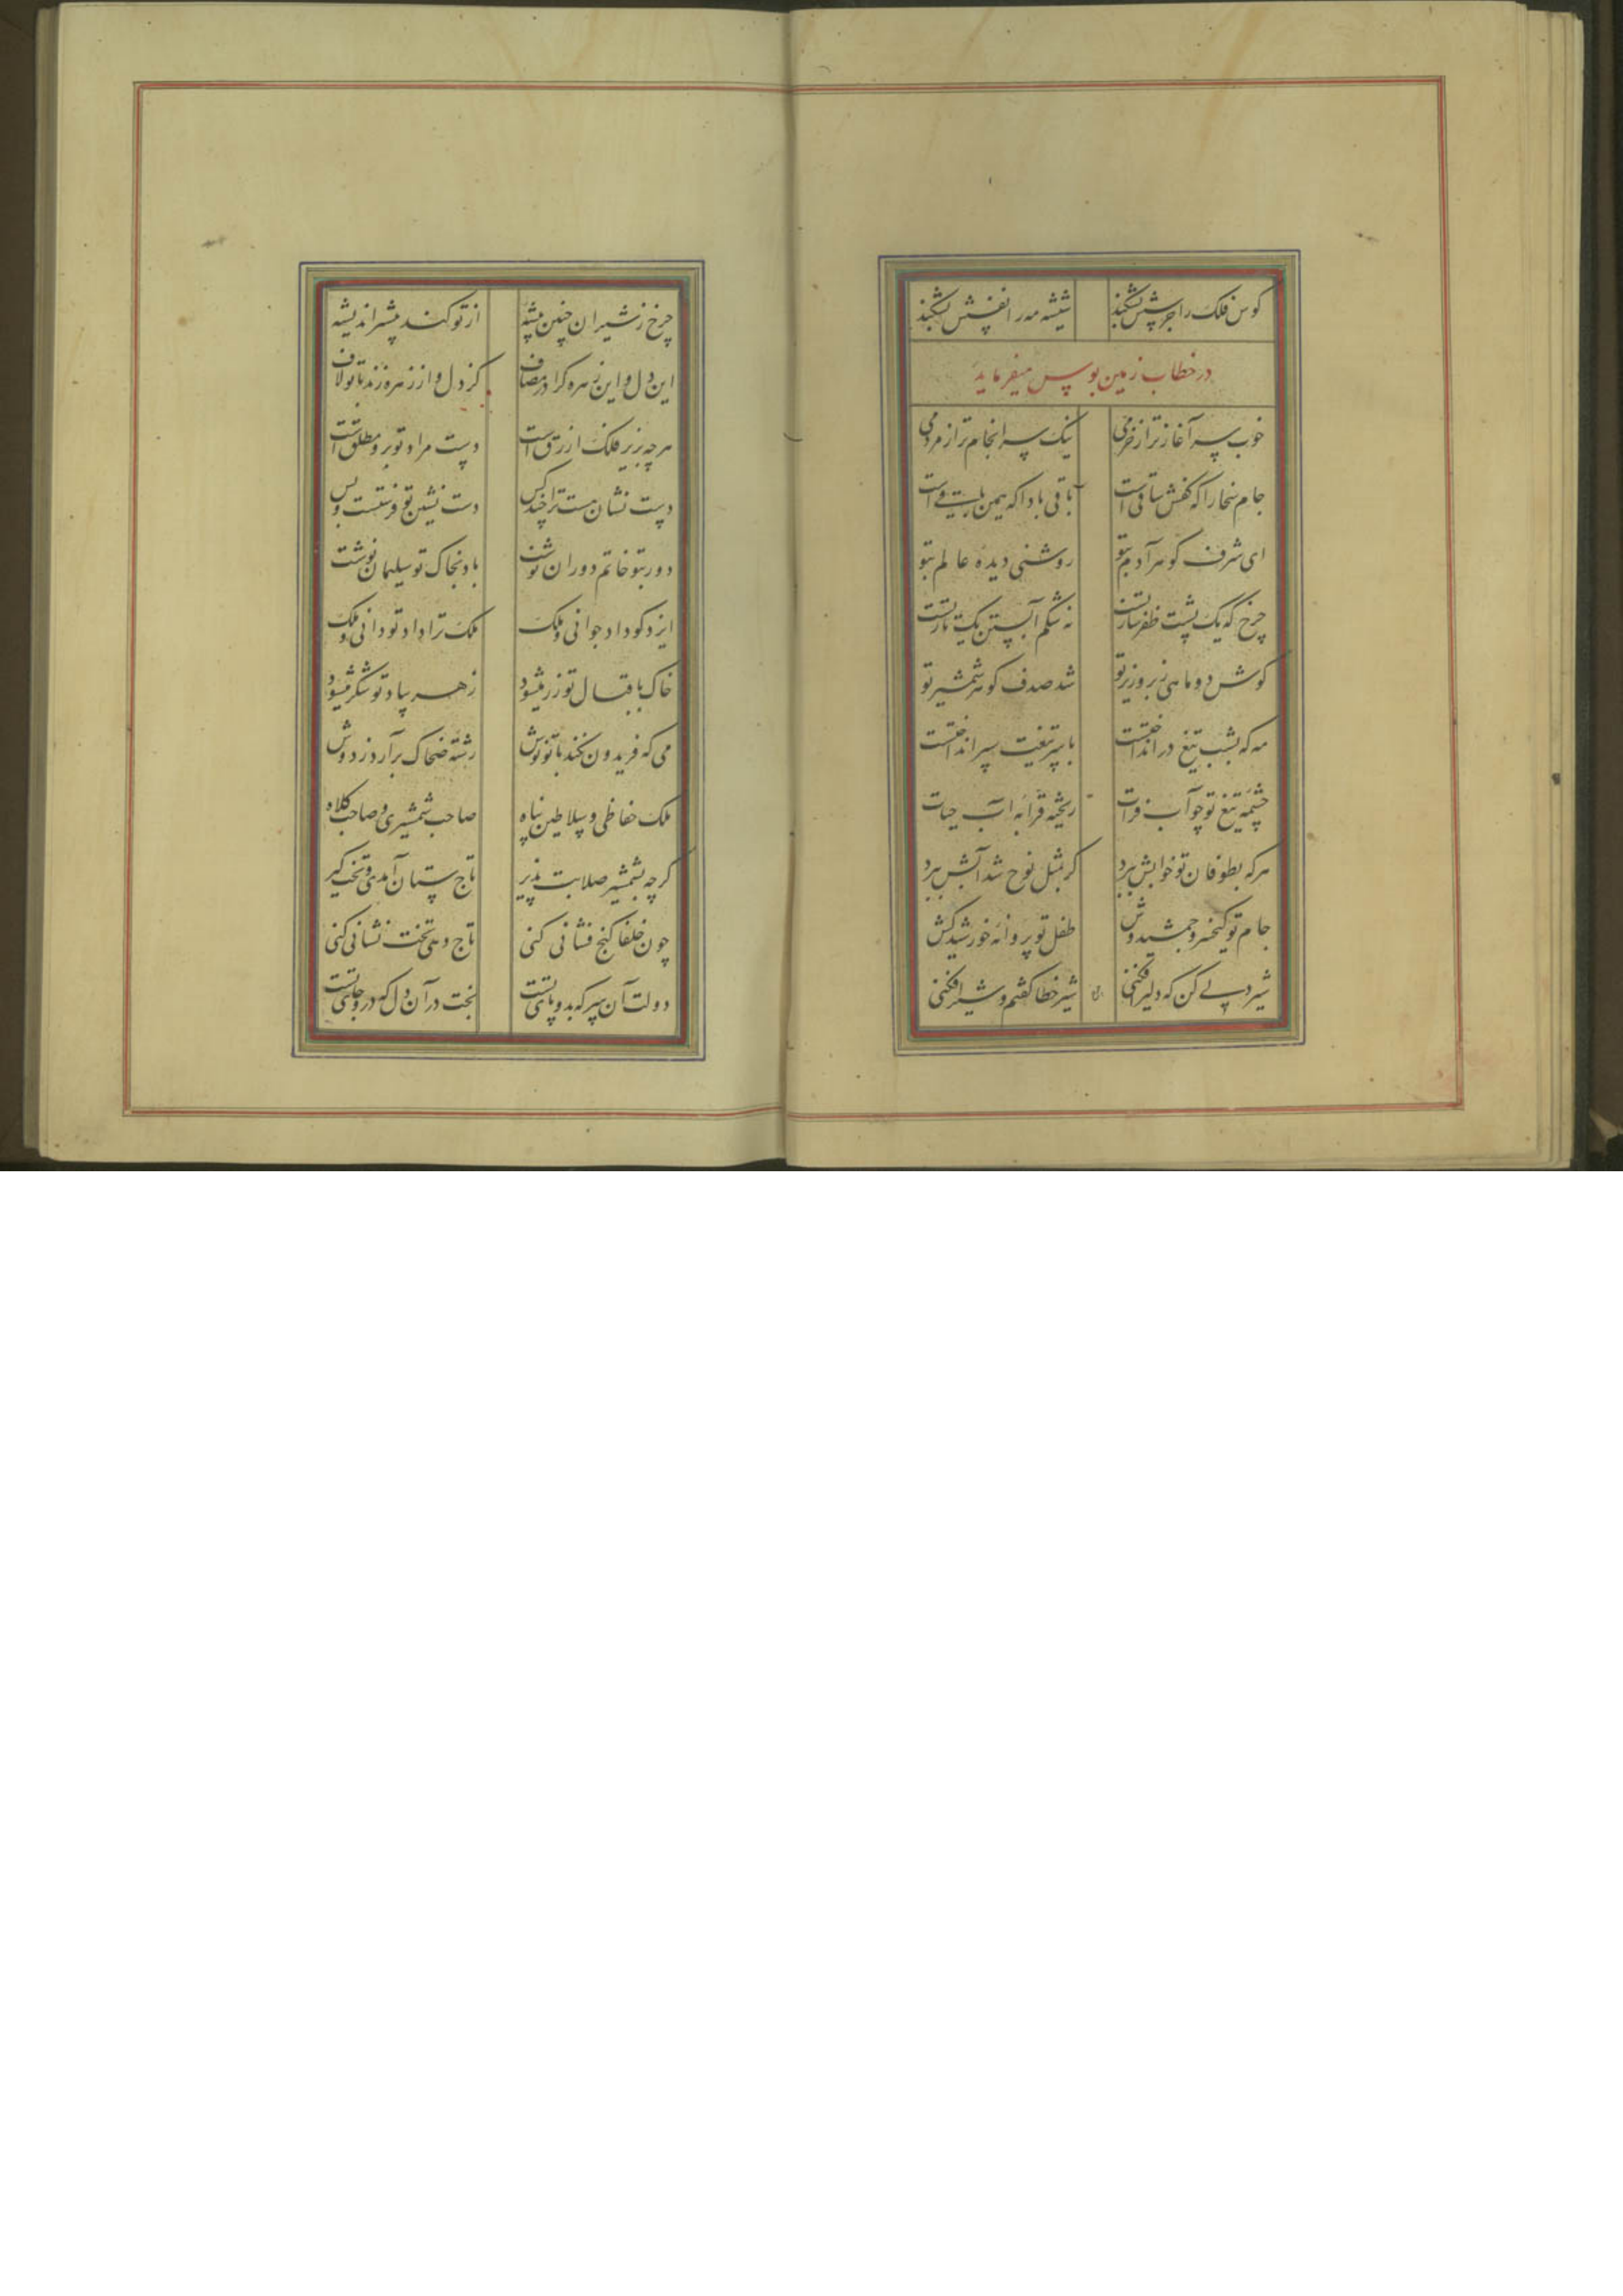 کوس فلک را جرسش بشکند شیشه مه را نفسش بشکند
در خطاب زمین بوس میفرماید
خوب سر آغاز تر از خرمی نیک سر انجام تر از مردمی
جام سخا را که کفش ساقی است باقی بادا که همین
ای شرف گوهر آدم بتو روشنی دیده عالم بتو
چرخ که یک پشت ظفر ساز تست نه شکم آبستن یک تست
گوش دو ماهی زبر و زیر تو شد صدف گوهر شمشیر تو
مه که بشب تیغ در انداختست با سر تیغت سپر انداختست
چشمه تیغ تو چو آب فرات ریخته قرابه آب حیات
هر که بطوفان تو خوابش برد گر بمثل نوح شد آبش برد
جام تو کیخسرو جمشیدوش طفل تو پروانه خورشید کش
شیر دلی کن که دلیر افکنی شیر خطا گفتم و شیر افکنی
چرخ ز شیران چنین بیشه از تو کند بیشتر اندیشه
این دل و این زهره کرا در مصاف کز دل و از زهره زند با تو لاف
هر چه بزیر فلک ازرق است دست مراد تو برو مطلق است
دست نشان هست ترا چند کس دست نشین تو فرشتست و بس
دور بتو خاتم دوران نوشت باد بخاک تو سلیمان نوشت
ایزد کو داد جوانی و ملک ملک ترا داد تو دانی و ملک
خاک باقبال تو زر میشود زهر بیاد تو شکر میشود
می که فریدون نکند با تو نوش رشته ضحاک برآرد ز دوش
ملک حفاظی و سلاطین پناه صاحب شمشیری و صاحب کلاه
گر چه بشمشیر صلابت پذیر تاج ستان آمدی و تخت گیر
چون خلفا گنج فشانی کنی تاج دهی تخت نشانی کنی
دولت آن سر که بدو پای تست بخت در آن دل که درو جای تست